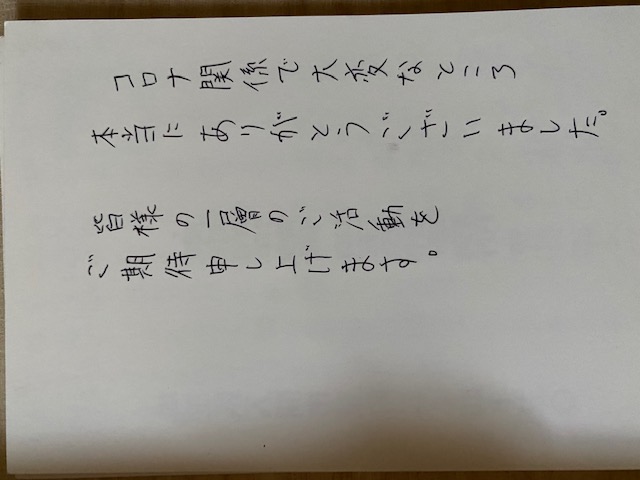 コロナ関係で大変なところ
本当にありがとうございました。
皆様の一層のご活動を
ご期待申し上げます。